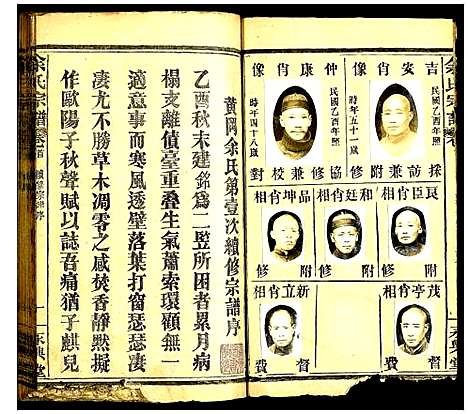 余氏宗譜
吉安肖像
民國乙酉年照
時年五十一歲
採訪兼附修
仲康肖像
民國乙酉年照
時年四十八歲
協修兼校對
良臣肖相
附修
和廷肖相
附修
品坤肖相
附修
茂亭肖相
督費
新立肖相
督費
永興堂
黃岡余氏第壹次續修宗譜序
乙酉秋末建銘為二竪所困者累月病
榻支離債臺重疊生氣蕭索環顧無一
適意事而寒風透壁落葉打窗瑟瑟凄
凄尤不勝草木凋零之感焚香靜然擬
作歐陽子秋聲賦以誌吾痛猶子麒兒
余氏宗譜
卷首
續修宗譜序
一
永興堂